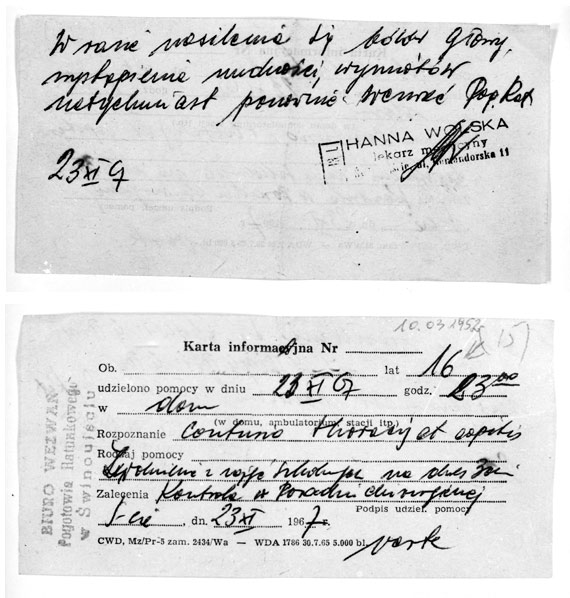 W razie nasilenia się bólów głowy,
wystąpienia nudności, wymiotów
natychmiast ponownie wezwać Pog. Rat.
HANNA WOLSKA
lekarz
ul. 11
23 XI 67
10.03.1952
15
Karta informacyjna Nr
Ob. lat 16
udzielono pomocy w dniu 23 XI 67 godz. 23 00
w dom
(w domu, ambulatorium, stacji itp.)
Rozpoznanie Contusio thoracis et capitis
Rodzaj pomocy
Zwolnienie z zajęć szkolnych na dwa dni
Zalecenia Kontrola w Poradni chirurgicznej
Ś-cie, dn. 23 XI 1967 r. Podpis udziel. pomocy
CWD, Mz/Pr-5 zam. 2434/Wa — WDA 1786 30.7.65 5.000 bl.
BIURO WEZWAŃ
Pogotowia Ratunkowego
w Świnoujściu